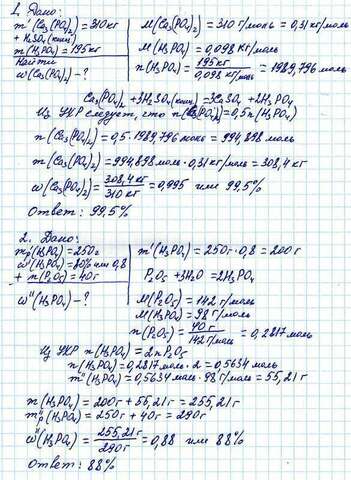 1. Дано:
m'(Ca₃(PO₄)₂) = 310 кг
+ H₂SO₄ (конц)
m(H₃PO₄) = 195 кг
Найти
ω(Ca₃(PO₄)₂) - ?
M(Ca₃(PO₄)₂) = 310 г/моль = 0,31 кг/моль
M(H₃PO₄) = 0,098 кг/моль
n(H₃PO₄) = 195 кг / 0,098 кг/моль = 1989,796 моль
Ca₃(PO₄)₂ + 3H₂SO₄ (конц) = 3CaSO₄ + 2H₃PO₄
Из УХР следует, что n(Ca₃(PO₄)₂) = 0,5n(H₃PO₄)
n(Ca₃(PO₄)₂) = 0,5·1989,796 моль = 994,898 моль
m(Ca₃(PO₄)₂) = 994,898 моль · 0,31 кг/моль = 308,4 кг
ω(Ca₃(PO₄)₂) = 308,4 кг / 310 кг = 0,995 или 99,5%
Ответ: 99,5%
2. Дано:
m'р(H₃PO₄) = 250 г
ω'(H₃PO₄) = 80% или 0,8
+ m(P₂O₅) = 40 г
ω''(H₃PO₄) - ?
m'(H₃PO₄) = 250 г · 0,8 = 200 г
P₂O₅ + 3H₂O = 2H₃PO₄
M(P₂O₅) = 142 г/моль
M(H₃PO₄) = 98 г/моль
n(P₂O₅) = 40 г / 142 г/моль = 0,2817 моль
Из УХР n(H₃PO₄) = 2nP₂O₅
n(H₃PO₄) = 0,2817 моль · 2 = 0,5634 моль
m''(H₃PO₄) = 0,5634 моль · 98 г/моль = 55,21 г
m(H₃PO₄) = 200 г + 55,21 г = 255,21 г
m''р(H₃PO₄) = 250 г + 40 г = 290 г
ω''(H₃PO₄) = 255,21 г / 290 г = 0,88 или 88%
Ответ: 88%